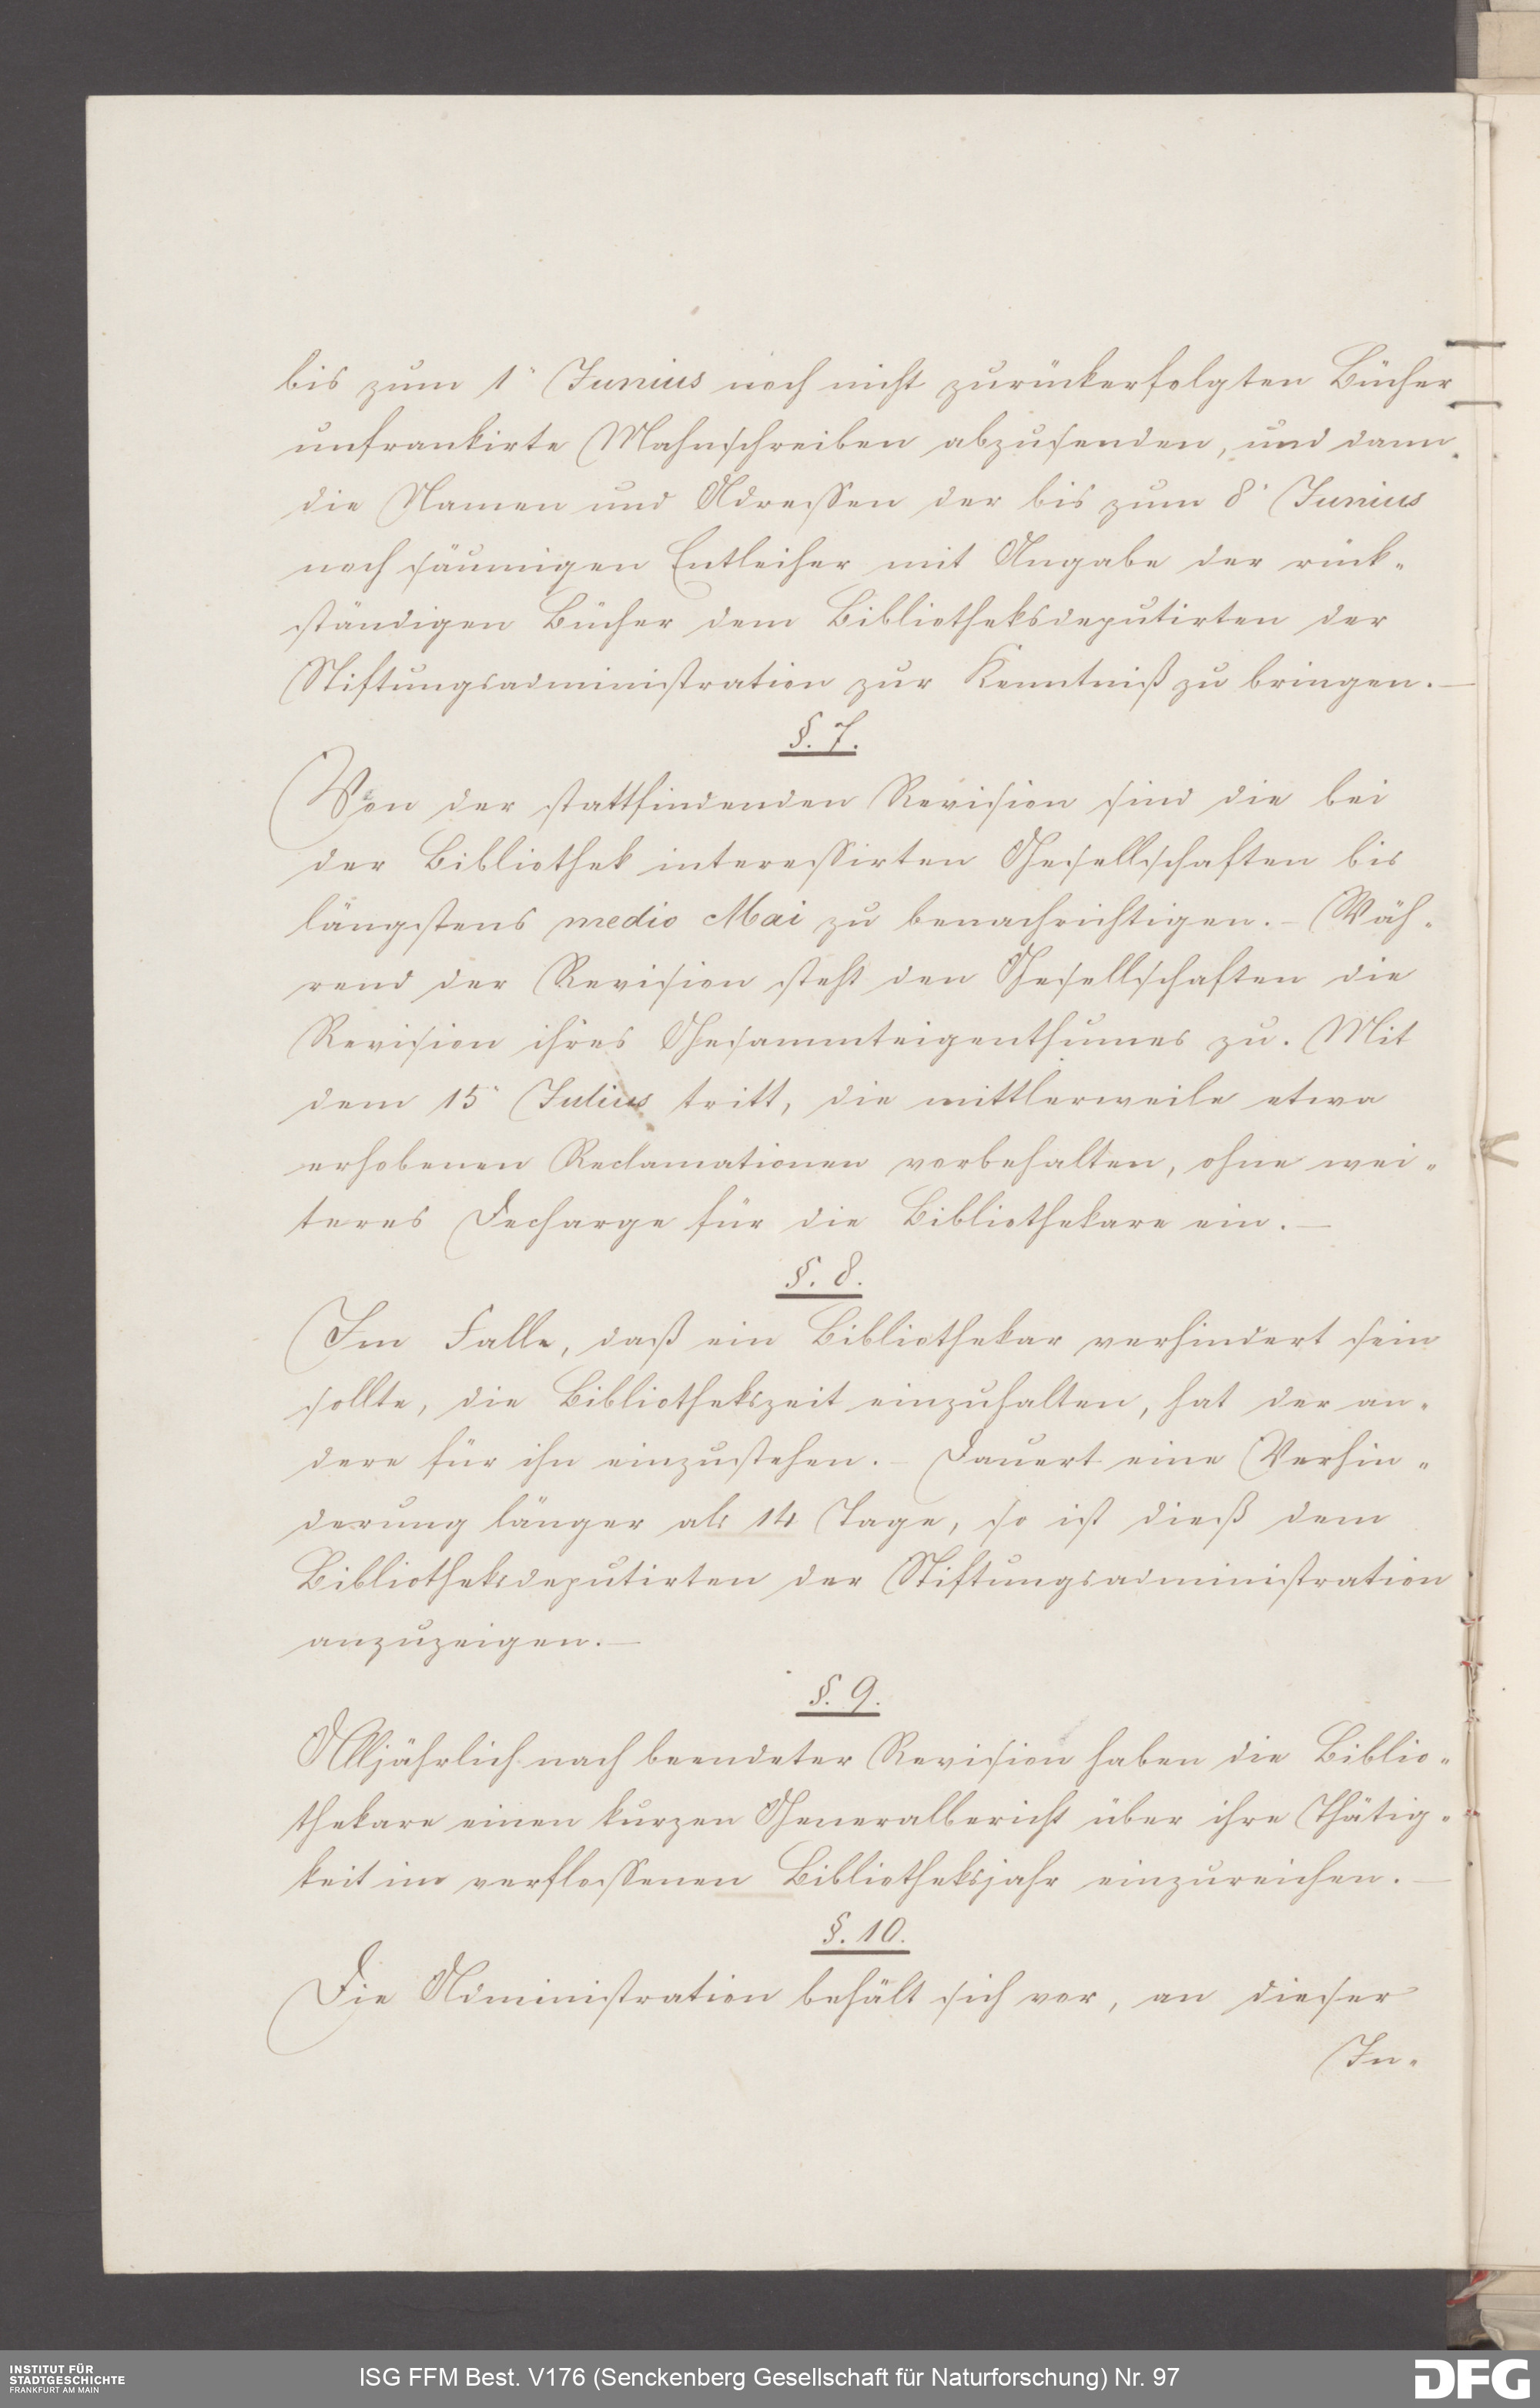 bis zum 1' Junius noch nicht zurückerfolgten Bücher
unfrankirte Mahnschreiben abzusenden, und dann
die Namen und Adressen der bis zum 8' Junius
noch säumigen Entleiher mit Angabe der rück-
ständigen Bücher dem Bibliotheksdeputirten der
Stiftungsadministration zur Kenntniß zu bringen.—
§. 7.
Von der stattfindenden Revision sind die bei
der Bibliothek interessirten Gesellschaften bis
längstens medio Mai zu benachrichtigen.– Wäh-
rend der Revision steht den Gesellschaften die
Revision ihres Gesammteigenthumes zu. Mit
dem 15' Julius tritt, die mittlerweile etwa
erhobenen Reclamationen vorbehalten, ohne wei-
teres Decharge für die Bibliothekare ein.—
§. 8.
Im Falle, daß ein Bibliothekar verhindert sein
sollte, die Bibliothekszeit einzuhalten, hat der an-
dere für ihn einzustehen.– Dauert eine Verhin-
derung länger als 14 Tage, so ist dieß dem
Bibliotheksdeputirten der Stiftungsadministration
anzuzeigen.—
§. 9.
Alljährlich nach beendeter Revision haben die Biblio-
thekare einen kurzen Generalbericht über ihre Thätig-
keit im verflossenen Bibliotheksjahr einzureichen.—
§. 10.
Die Administration behält sich vor, an dieser
In-
INSTITUT FÜR
STADTGESCHICHTE
FRANKFURT AM MAIN
ISG FFM Best. V176 (Senckenberg Gesellschaft für Naturforschung) Nr. 97
DFG